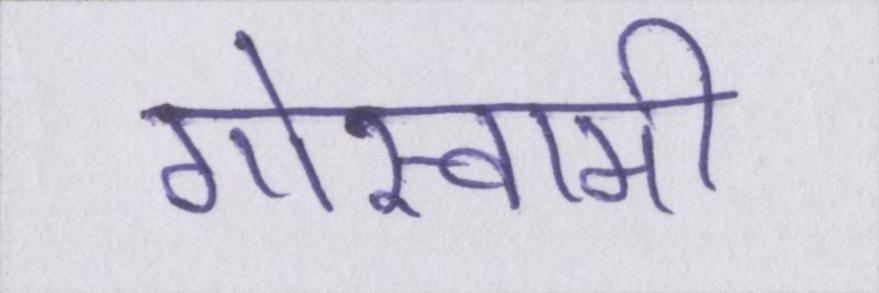 गोस्वामी